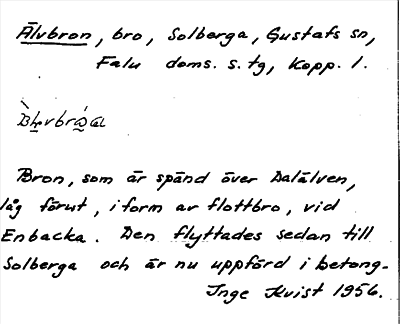 Älvbron, bro, Solberga, Gustafs sn,
Falu doms. s. tg, Kopp. l.
Bron, som är spänd över Dalälven,
låg förut, i form av flottbro, vid
Enbacka. Den flyttades sedan till
Solberga och är nu uppförd i betong.
Inge Kvist 1956.